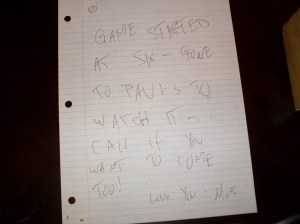 GAME STARTED
AT SIX - GONE
TO PAUL'S TO
WATCH IT -
CALL IF YOU
WANT TO COME
TOO!
Love You -